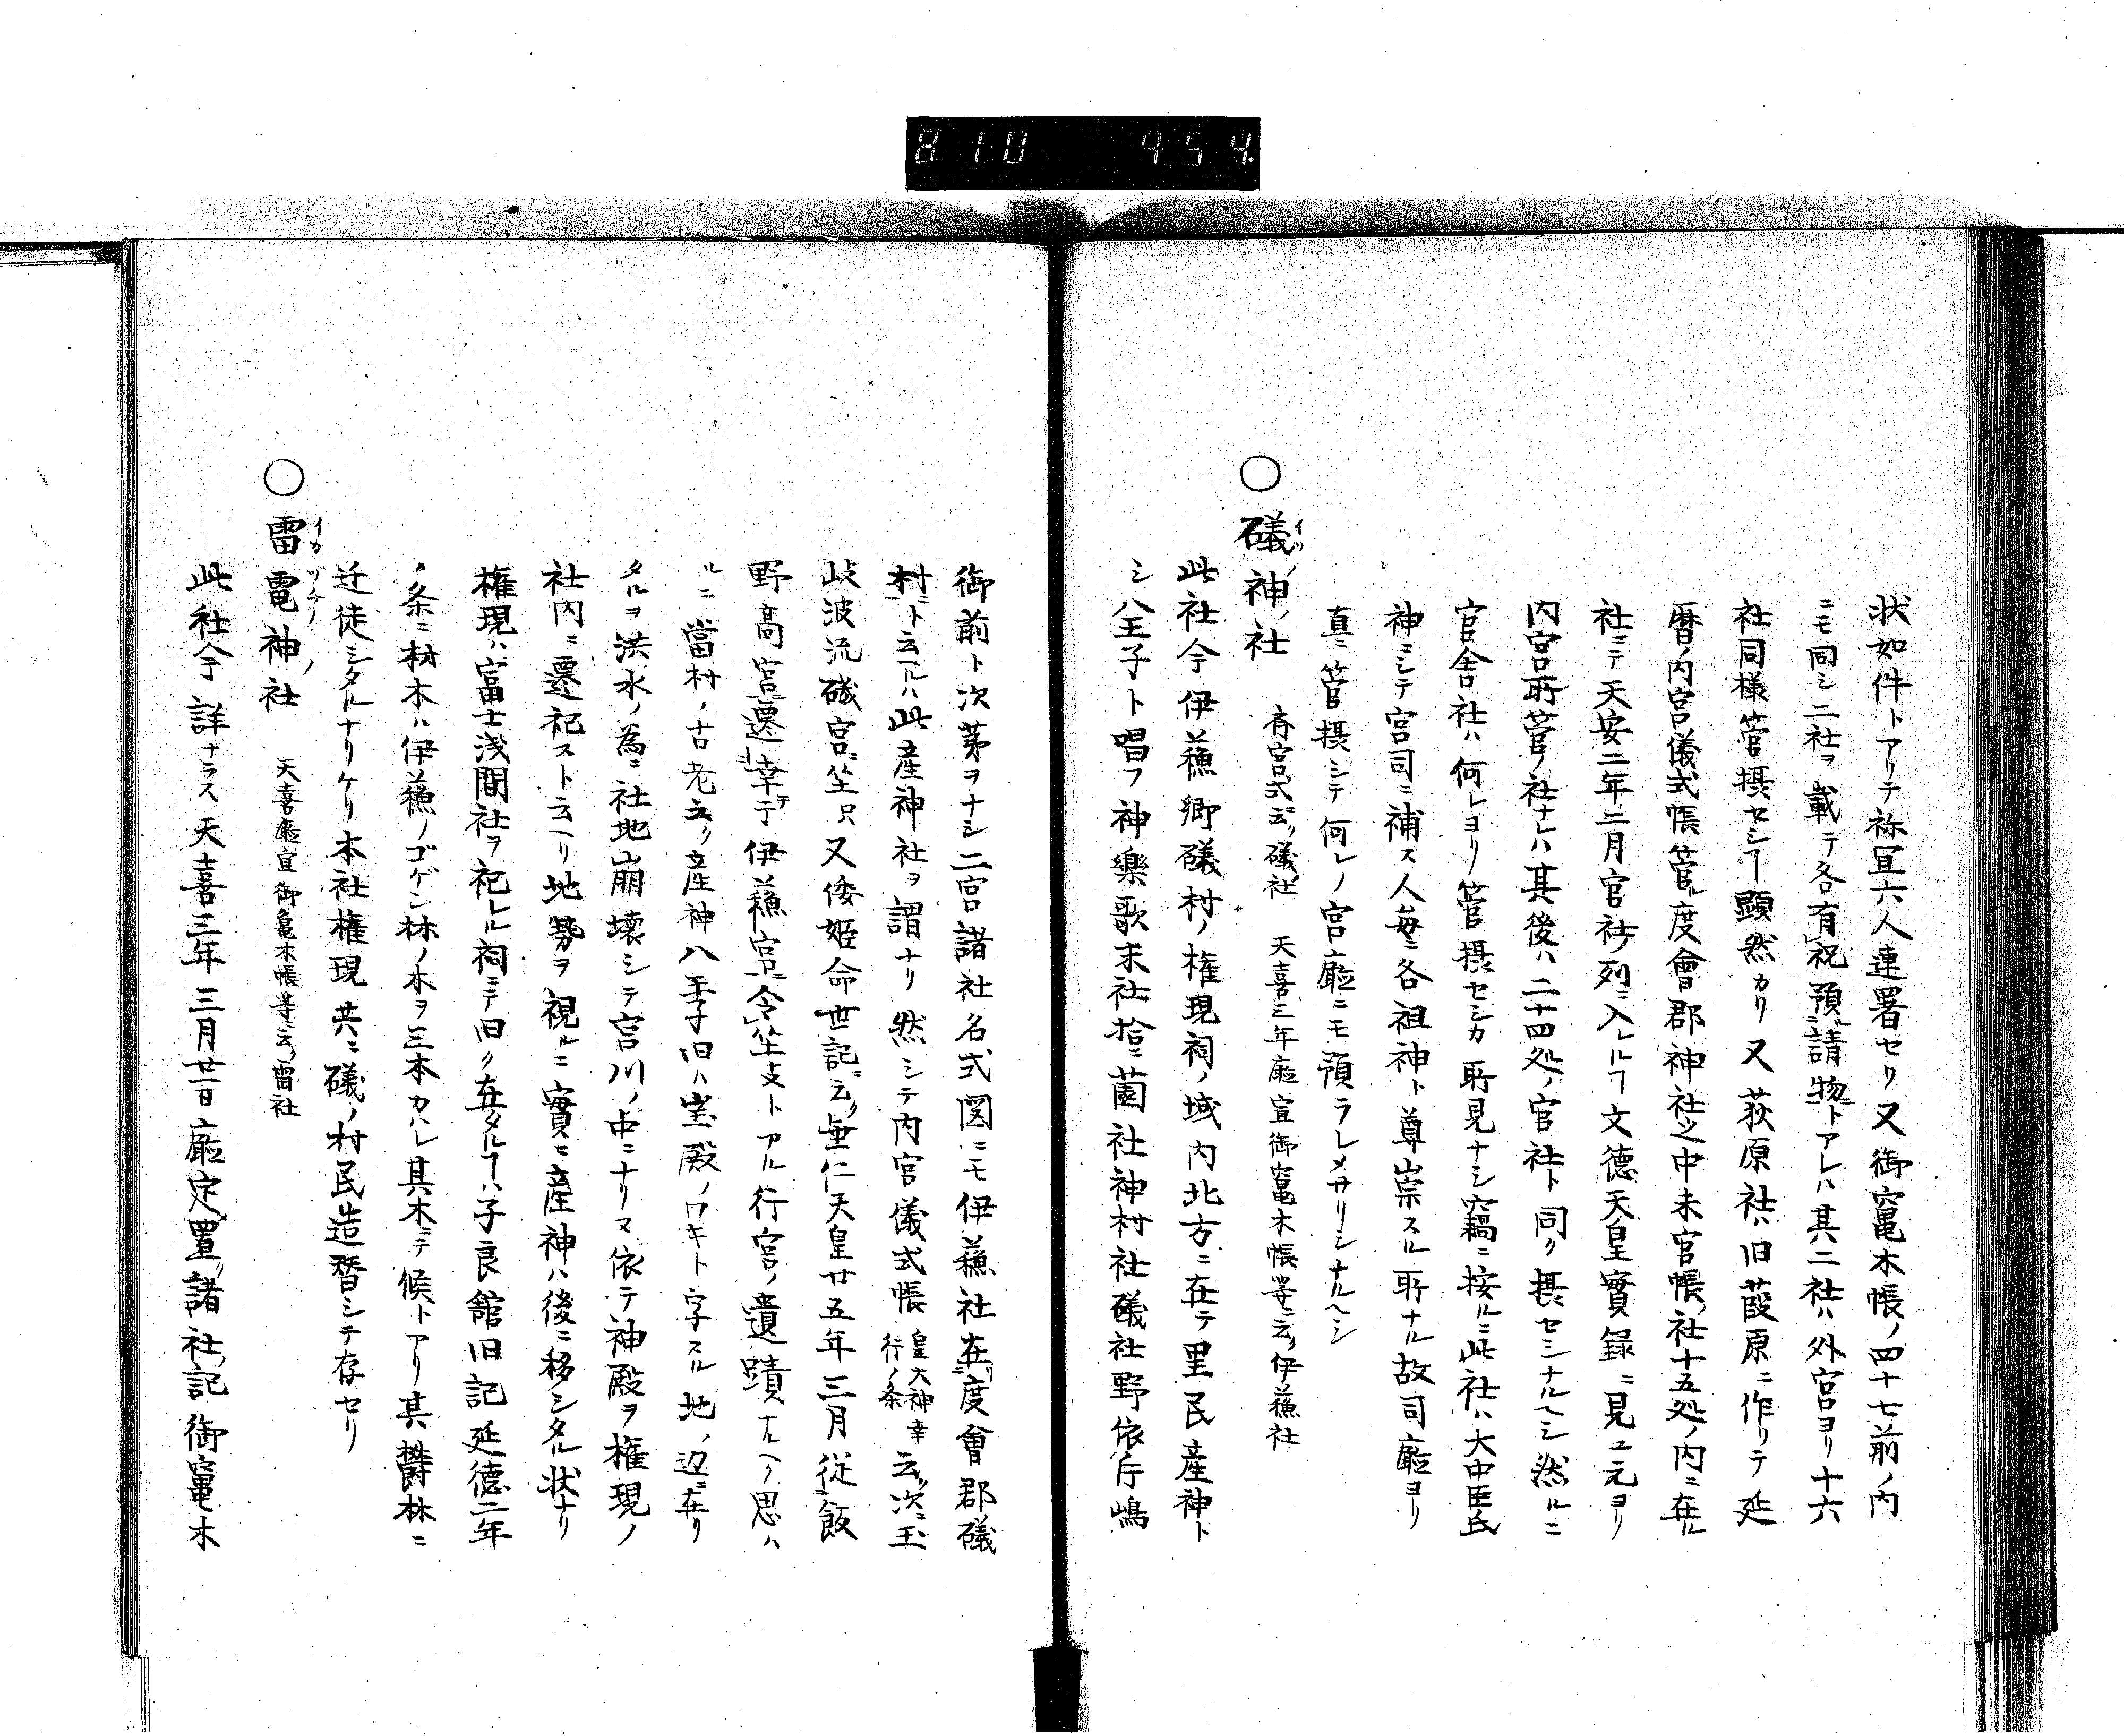 810 454
状如件トアリテ祢冝六人連署セリ又御竃木帳ノ四十七前ノ内
ニモ同シ二社ヲ載テ各有祝預請物トアレハ其二社ハ外宮ヨリ十六
社同様管摂セシヿ顕然カリ又荻原社ハ旧葭原ニ作リテ延
暦ノ内宮儀式帳管ル度會郡神社之中未官帳社十五処ノ内ニ在ル
社ニテ天安二年二月官社ノ列ニ入ルヿ文徳天皇實録ニ見ユ元ヨリ
内宮所管ノ社ナレハ其後ハ二十四処ノ官社ト同ク摂セシナルヘシ然ルニ
官舎社ハ何レヨリ管摂セシカ所見ナシ竊ニ按ルニ此社ハ大中臣氏
神ニシテ宮司ニ補ス人毎ニ各祖神ト尊崇スル所ナル故司廰ヨリ
真ニ管摂シテ何レノ宮廰ニモ預ラレメサリシナルヘシ
○礒神ノ社 斉宮式云ク礒社 天喜三年廰宣御竃木帳等ニ云ク伊蘓社
イソ
此社今伊蘓郷礒村ノ権現祠ノ域内北方ニ在テ里民産神ト
シ八王子ト唱フ神樂歌末社拾ニ薗社神村社礒社野依斤嶋
御前ト次第ヲナシ二宮諸社名式図ニモ伊蘓社在度會郡礒
村ニト云ヘルハ此産神社ヲ謂ナリ然シテ内宮儀式帳皇大神幸行ノ条云ク次ニ玉
岐波流礒宮ニ坐只又倭姫命世記ニ云ク垂仁天皇廿五年三月従飯
野高宮遷幸テ于伊蘓宮令坐支トアル行宮ノ遺蹟ナルヘク思ハ
ルニ當村ノ古老云ク産神八王子旧ハ宝殿ノワキト字スル地ノ辺ニ在リ
タルヲ洪水ノ為ニ社地崩壊シテ宮川ノ中ニナリヌ依テ神殿ヲ権現ノ
社内ニ遷祀スト云ヘリ地勢ヲ視ルニ實ニ産神ハ後ニ移シタル状ナリ
権現ハ富士浅間社ヲ祀レル祠ニテ旧ク在タルヿハ子良舘旧記延徳二年
ノ条ニ材木ハ伊蘓ノゴゲン林ノ木ヲ三本カハレ其木ニテ候トアリ其欝林ニ
迁徒シタルナリケリ本社権現共ニ礒ノ村民造替シテ存セリ
○雷電神ノ社 天喜廰宣御竃木帳等ニ云ク雷社
イカヅチノ
此社今詳ナラス天喜三年三月廿一日廰定置諸社ノ記御竃木